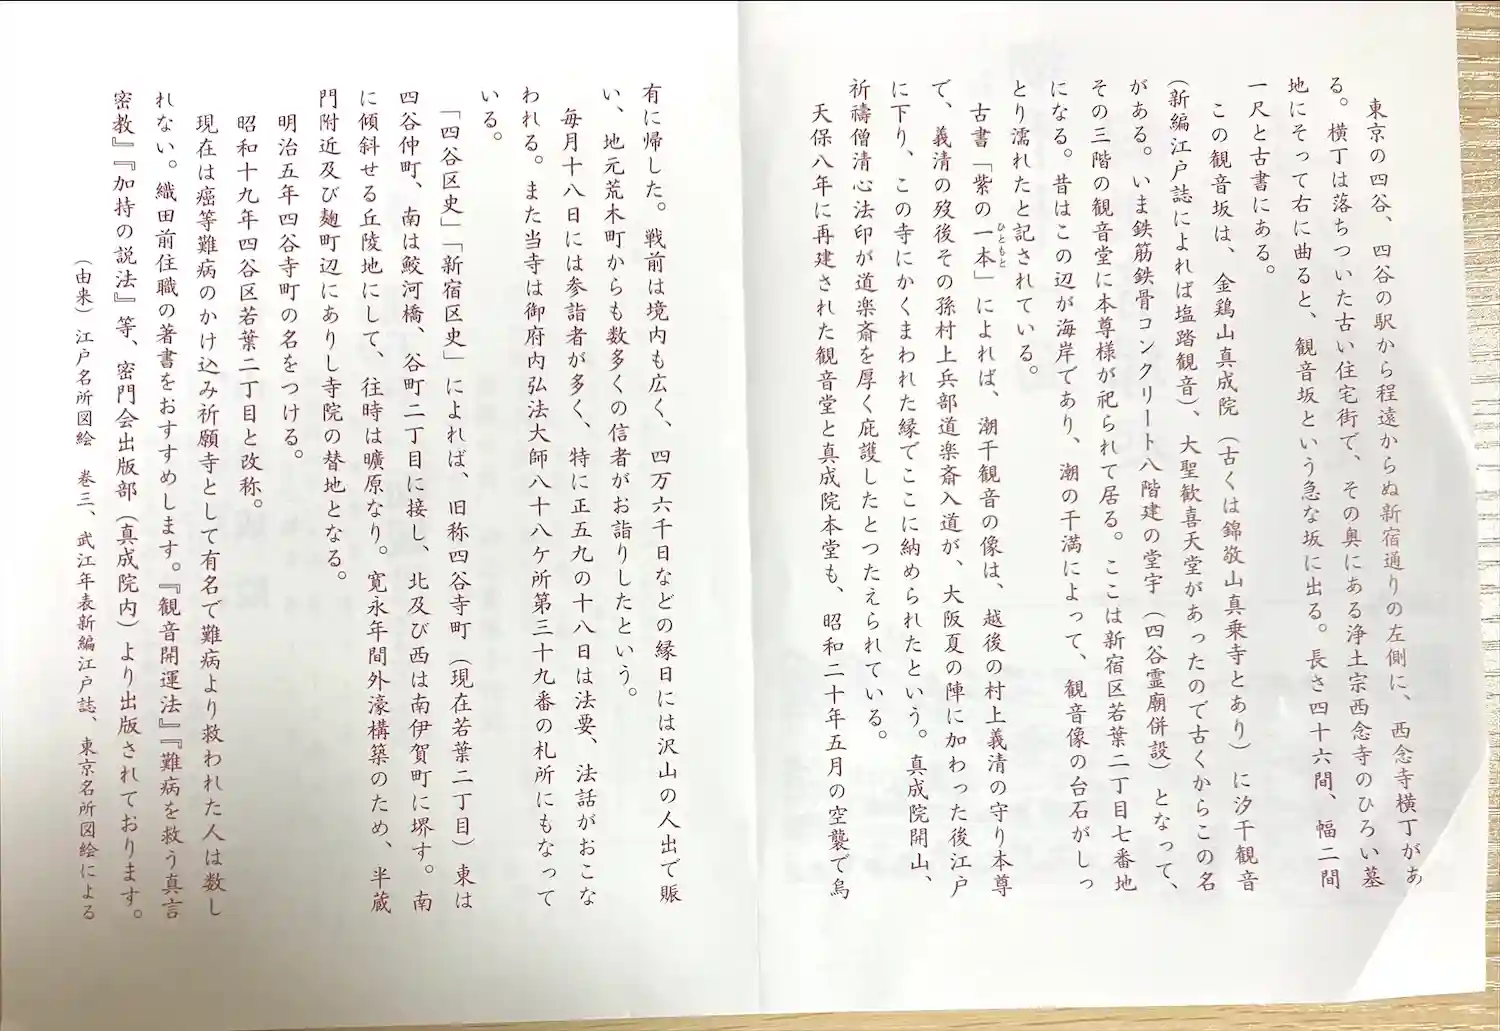 東京の四谷、四谷の駅から程遠からぬ新宿通りの左側に、西念寺横丁があ
る。横丁は落ちついた古い住宅街で、その奥にある浄土宗西念寺のひろい墓
地にそって右に曲ると、観音坂という急な坂に出る。長さ四十六間、幅二間
一尺と古書にある。
この観音坂は、金鶏山真成院（古くは錦敬山真乗寺とあり）に汐干観音
（新編江戸誌によれば塩踏観音）、大聖歓喜天堂があったので古くからこの名
がある。いま鉄筋鉄骨コンクリート八階建の堂宇（四谷霊廟併設）となって、
その三階の観音堂に本尊様が祀られて居る。ここは新宿区若葉二丁目七番地
になる。昔はこの辺が海岸であり、潮の干満によって、観音像の台石がしっ
とり濡れたと記されている。
古書「紫の一本」によれば、潮干観音の像は、越後の村上義清の守り本尊
ひともと
で、義清の歿後その孫村上兵部道楽斎入道が、大阪夏の陣に加わった後江戸
に下り、この寺にかくまわれた縁でここに納められたという。真成院開山、
祈禱僧清心法印が道楽斎を厚く庇護したとつたえられている。
天保八年に再建された観音堂と真成院本堂も、昭和二十年五月の空襲で烏
有に帰した。戦前は境内も広く、四万六千日などの縁日には沢山の人出で賑
い、地元荒木町からも数多くの信者がお詣りしたという。
毎月十八日には参詣者が多く、特に正五九の十八日は法要、法話がおこな
われる。また当寺は御府内弘法大師八十八ケ所第三十九番の札所にもなって
いる。
「四谷区史」「新宿区史」によれば、旧称四谷寺町（現在若葉二丁目）東は
四谷仲町、南は鮫河橋、谷町二丁目に接し、北及び西は南伊賀町に堺す。南
に傾斜せる丘陵地にして、往時は曠原なり。寛永年間外濠構築のため、半蔵
門附近及び麹町辺にありし寺院の替地となる。
明治五年四谷寺町の名をつける。
昭和十九年四谷区若葉二丁目と改称。
現在は癌等難病のかけ込み祈願寺として有名で難病より救われた人は数し
れない。織田前住職の著書をおすすめします。『観音開運法』『難病を救う真言
密教』『加持の説法』等、密門会出版部（真成院内）より出版されております。
（由来）江戸名所図絵　巻三、武江年表新編江戸誌、東京名所図絵による